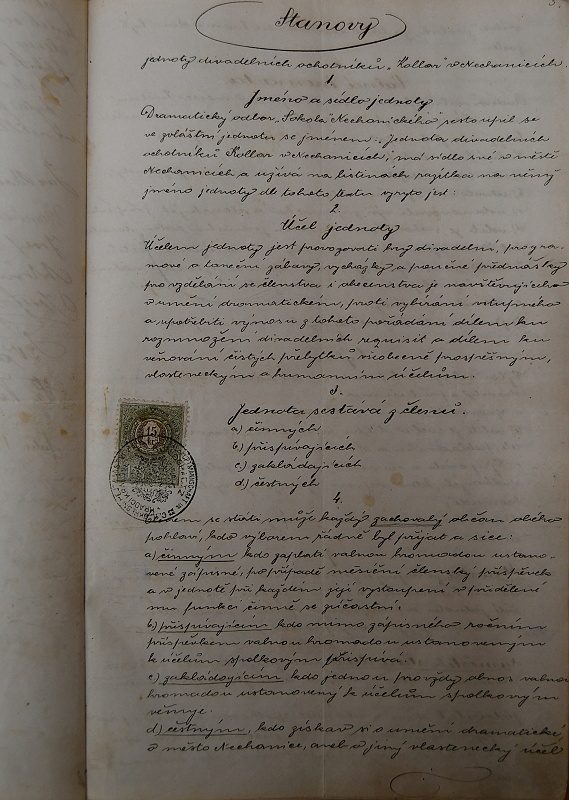 Stanovy
jednoty divadelních ochotníků „Kollár" v Nechanicích.
1.
Jméno a sídlo jednoty
Dramatický odbor „Sokola Nechanického" sestoupil se
ve zvláštní jednotu se jménem: „Jednota divadelních
ochotníků Kollár v Nechanicích", má sídlo své v městě
Nechanicích a užívá na listinách razítka na němž
jméno jednoty dle tohoto textu vyryto jest:
2.
Účel jednoty
Účelem jednoty jest provozovati hry divadelní, progra-
mové a taneční zábavy, vycházky, a poučné přednášky
pro vzdělání se členstva i obecenstva je navštěvujícího
v umění dramatickém, proti vybírání vstupného
a upotřebiti výnosu z tohoto pořádání dílem ku
rozmnožení divadelních requisit a dílem ku
věnování čistých přebytků všeobecně prospěšným,
vlasteneckým a humanním účelům.
3.
Jednota sestává z členů.
a) činných
b) přispívajících
c) zakládajících
d) čestných
4.
se státi může každý zachovalý občan obého
pohlaví, kdo výborem řádně byl přijat a sice:
a) činným kdo zaplatí valnou hromadou ustano-
vené zápisné, po případě měsíční členský příspěvek
a v jednotě při každém její vystoupení v přidělené
mu funkci činně se zúčastní.
b) přispívajícím kdo mimo zápisného ročním
příspěvkem valnou hromadou ustanoveným
k účelům spolkovým přispívá.
c) zakládajícím kdo jednou pro vždy obnos valnou
hromadou ustanovený k účelům spolkovým
věnuje.
d) čestným, kdo získav si o umění dramatické,
o město Nechanice, aneb o jiný vlastenecký účel
15